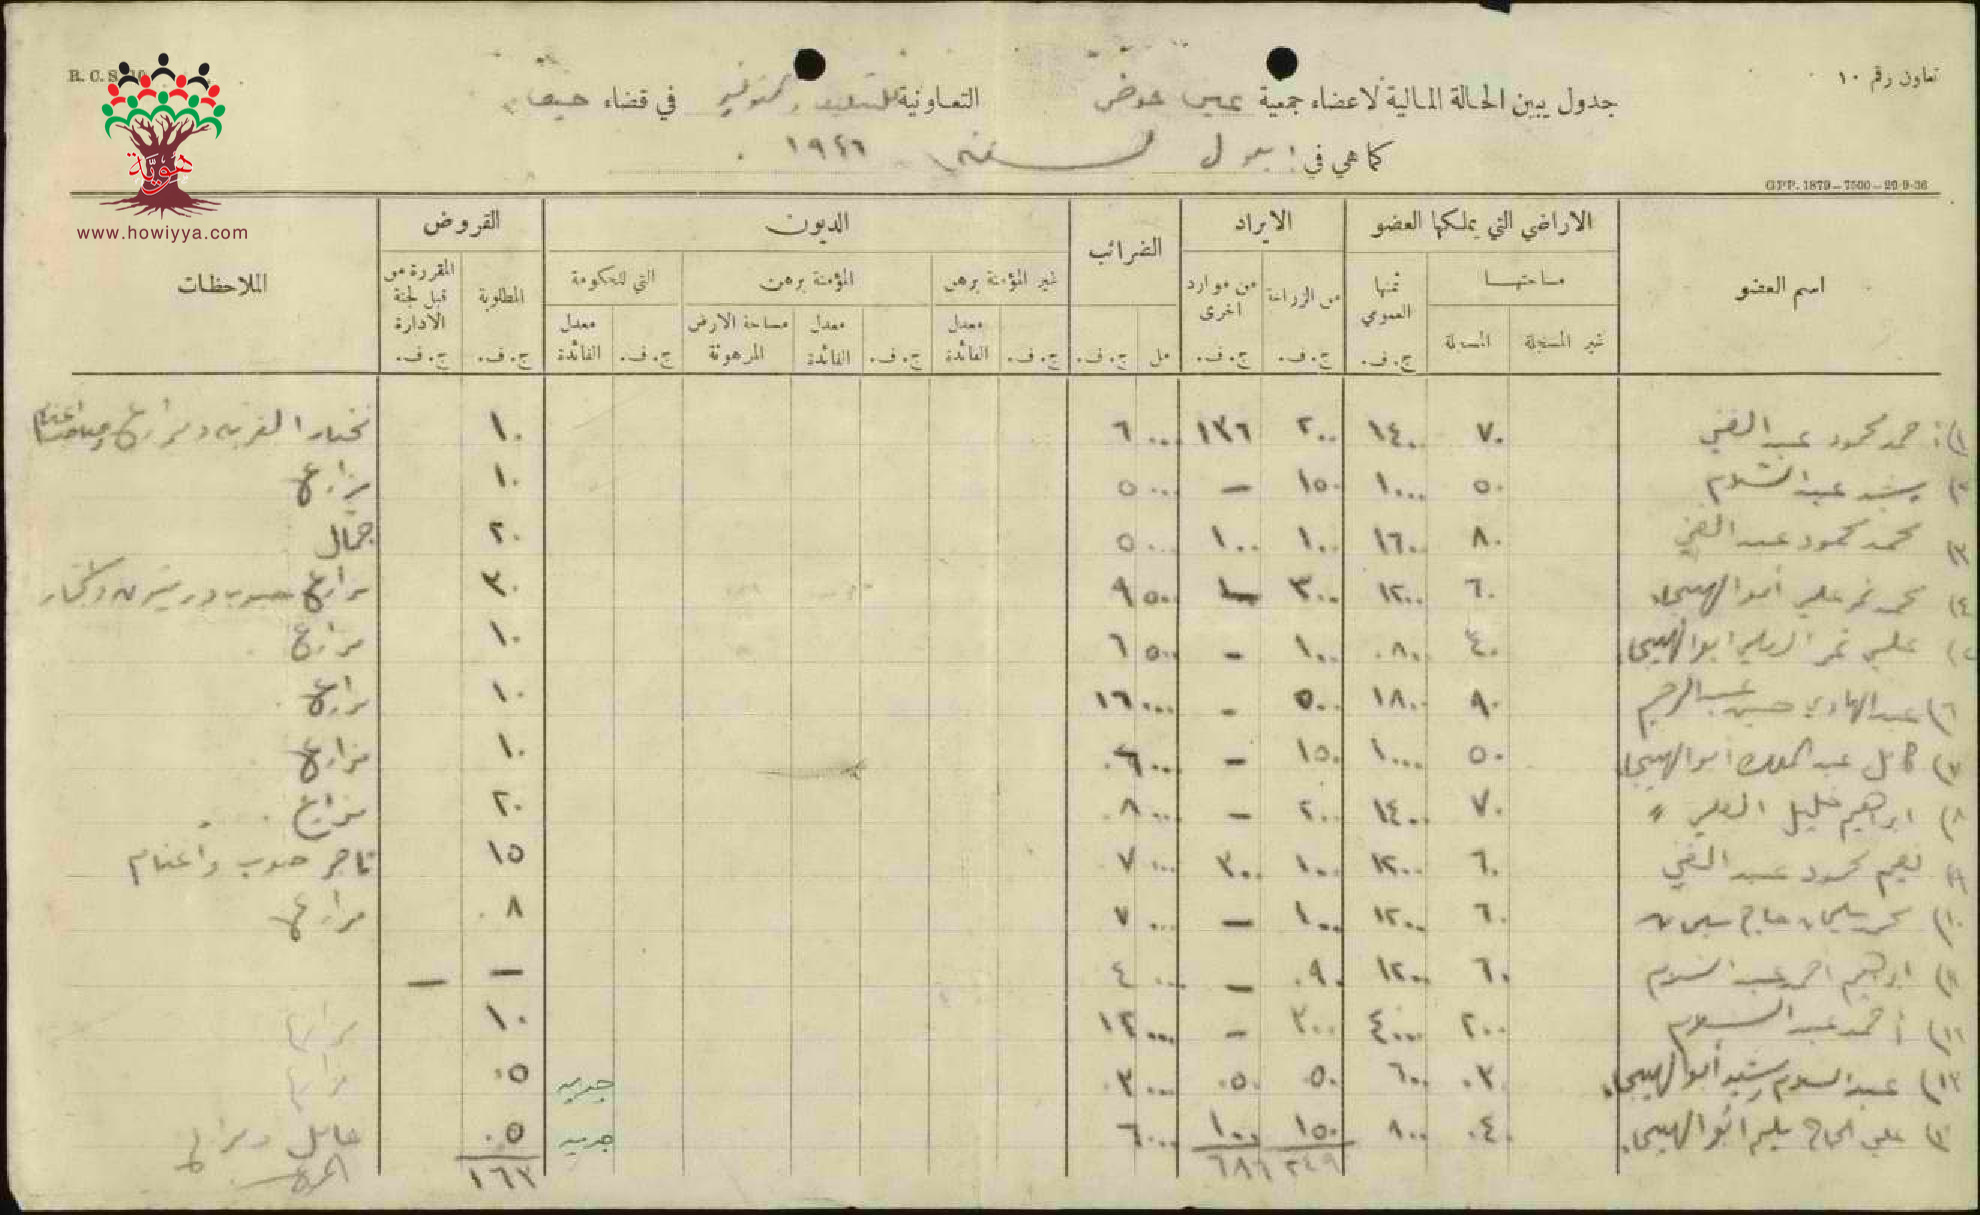 تعاون رقم ١٠
R. C. S.
جدول يبين الحالة المالية لاعضاء جمعية عين حوض التعاونية للتسليف والتوفير في قضاء حيفا
كما هي في : ١٩٤٦
G.P.P. 1879—7500—29-9-36
هوية
www.howiyya.com
اسم العضو
الاراضي التي يملكها العضو
مساحتها
غير المسجلة
المسجلة
ثمنها العمومي
ج. ف.
الايراد
من الزراعة
ج. ف.
من موارد اخرى
ج. ف.
الضرائب
مل
ج. ف.
الديون
غير المؤمنة برهن
ج. ف.
معدل الفائدة
المؤمنة برهن
ج. ف.
معدل الفائدة
مساحة الارض المرهونة
التي للحكومة
ج. ف.
معدل الفائدة
القروض
المطلوبة
ج. ف.
المقررة من قبل لجنة الادارة
ج. ف.
الملاحظات
١) احمد محمود عبد الغني ٧٠ ١٤٠٠ ٢٠٠ ١٣٦ ٠٠٠ ٦ ١٠ مختار القرية ومزارع
٢) رشيد عبد السلام ٥٠ ١٠٠٠ ١٥٠ — ٠٠٠ ٥ ١٠ مزارع
٣) محمد محمود عبد الغني ٨٠ ١٦٠٠ ١٠٠ ١٠٠ ٠٠٠ ٥ ٢٠ جمال
٤) محمد نمر علي ابو الهيجا ٦٠ ١٢٠٠ ٣٠٠ ٥٠٠ ٩ ٣٠ مزارع حبوب وزيتون
٥) علي نمر العلي ابو الهيجا ٤٠ ٨٠٠ ١٠٠ — ٥٠٠ ٦ ١٠ مزارع
٦) عبد الهادي حسين عبد الرحيم ٩٠ ١٨٠٠ ٥٠٠ — ٠٠٠ ١٦ ١٠ مزارع
٧) كامل عبد الملك ابو الهيجا ٥٠ ١٠٠٠ ١٥٠ — ٠٠٠ ٦ ١٠ مزارع
٨) ابراهيم خليل العلي " ٧٠ ١٤٠٠ ٢٠٠ — ٠٠٠ ٨ ٢٠ مزارع
٩) نعيم محمود عبد الغني ٦٠ ١٢٠٠ ١٠٠ ٣٠٠ ٠٠٠ ٧ ١٥ تاجر حبوب واغنام
١٠) محمد سليمان حاج سليمان ٦٠ ١٢٠٠ ١٠٠ — ٠٠٠ ٧ ٨ مزارع
١١) ابراهيم احمد عبد السلام ٦٠ ١٢٠٠ ٩٠ — ٠٠٠ ٤ — —
١٢) احمد عبد السلام ٢٠٠ ٤٠٠٠ ٣٠٠ — ٠٠٠ ١٢ ١٠ مزارع
١٣) عبد السلام رشيد أبو الهيجا ٣٠ ٦٠٠ ٥٠ ٥٠ ٠٠٠ ٣ جديد ٥ مزارع
علي الحاج سليم أبو الهيجا ٤٠ ٨٠٠ ١٥٠ ١٠٠ ٠٠٠ ٦ جديد ٥
٢٤٩ ٦٨٦ ١٦٣